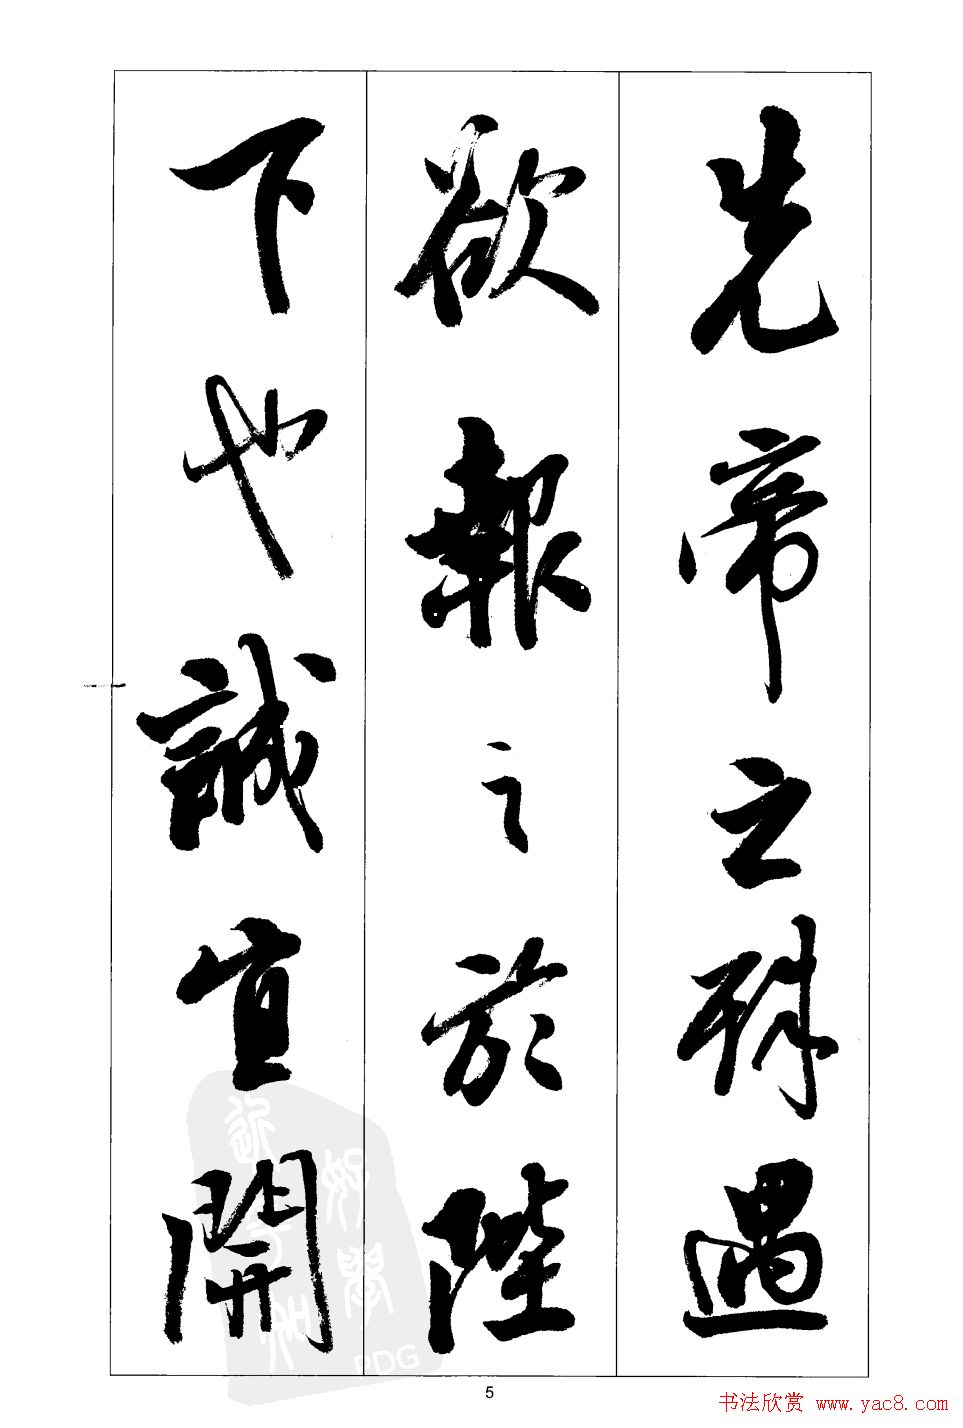 先帝之殊遇
欲報之於陛
下也誠宜開
PDG
5
书法欣赏 www.yac8.com